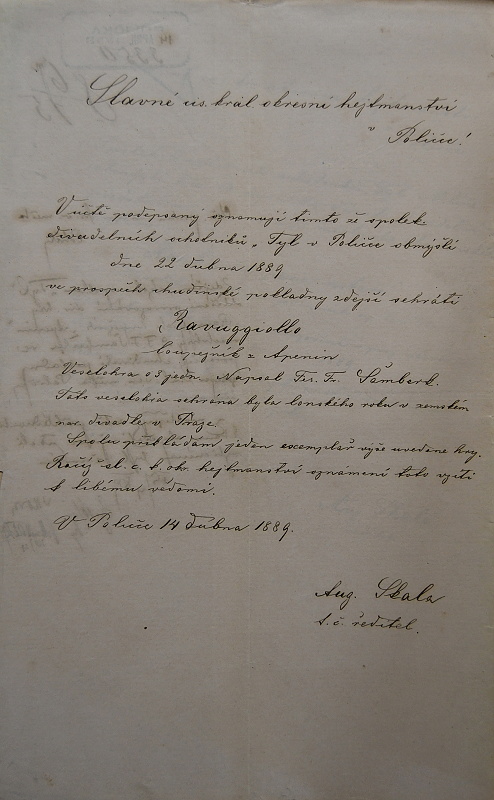 Slavné cís. král. okresní hejtmanství
v Poličce!
V úctě podepsaný oznamuji tímto že spolek
divadelních ochotníků „Tyl v Poličce obmýšlí
dne 22 dubna 1889
ve prospěch chudinské pokladny zdejší sehráti
Ravuggiollo
loupežník z Apenin
Veselohra o 3 jedn. Napsal Fer. Fr. Šamberk.
Tato veselohra sehrána byla lonského roku v zemském
nar. divadle v Praze.
Spolu přikládám jeden exemplář výše uvedené hry.
Račiž sl. c. k. okr. hejtmanství oznámení toto vzíti
k libému vědomí.
V Poličce 14 dubna 1889.
Aug. Skala
t. č. ředitel.